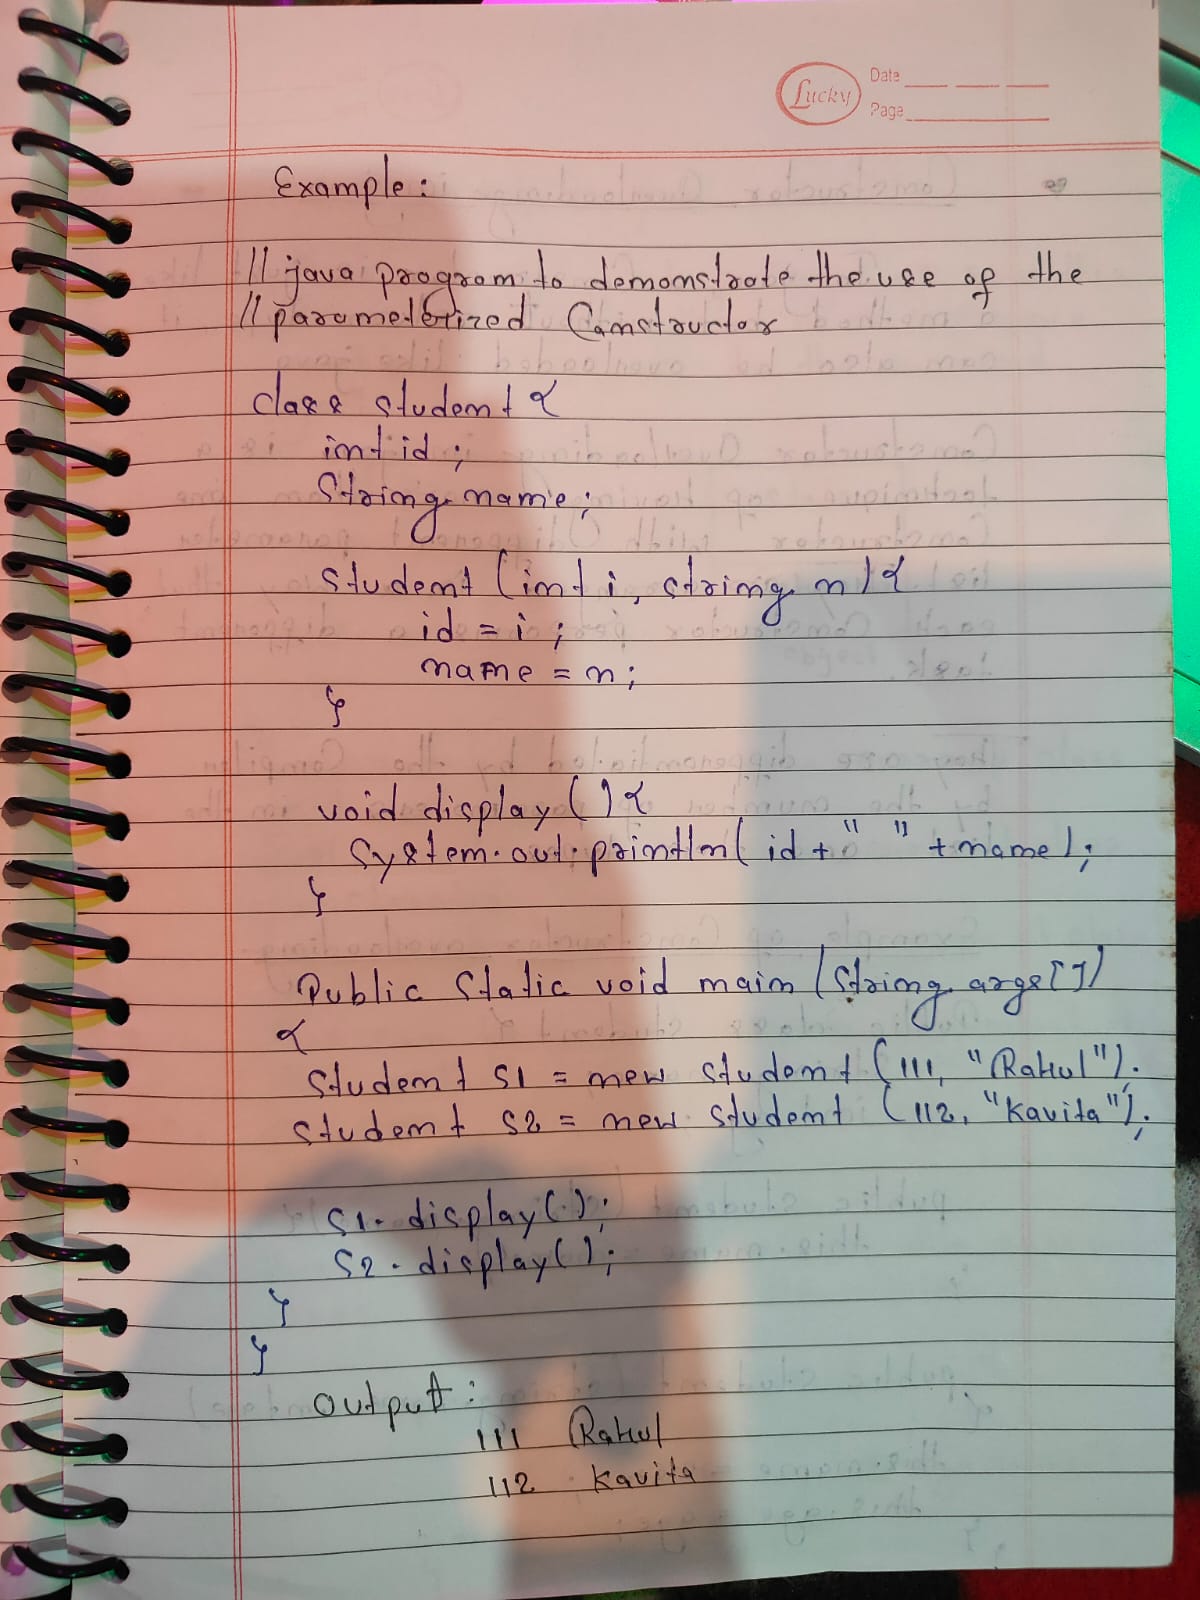 Lucky
Date
Page
Example:
// java program to demonstrate the use of the
// parameterized Constructor
class student {
int id ;
String name ;
student (int i, string n) {
id = i ;
name = n ;
}
void display () {
System.out.println( id + " " + name ) ;
}
Public Static void main (String args[])
{
student S1 = new student (111, "Rahul");
student S2 = new student (112, "Kavita");
S1.display();
S2.display();
}
}
Output :
111 Rahul
112 Kavita